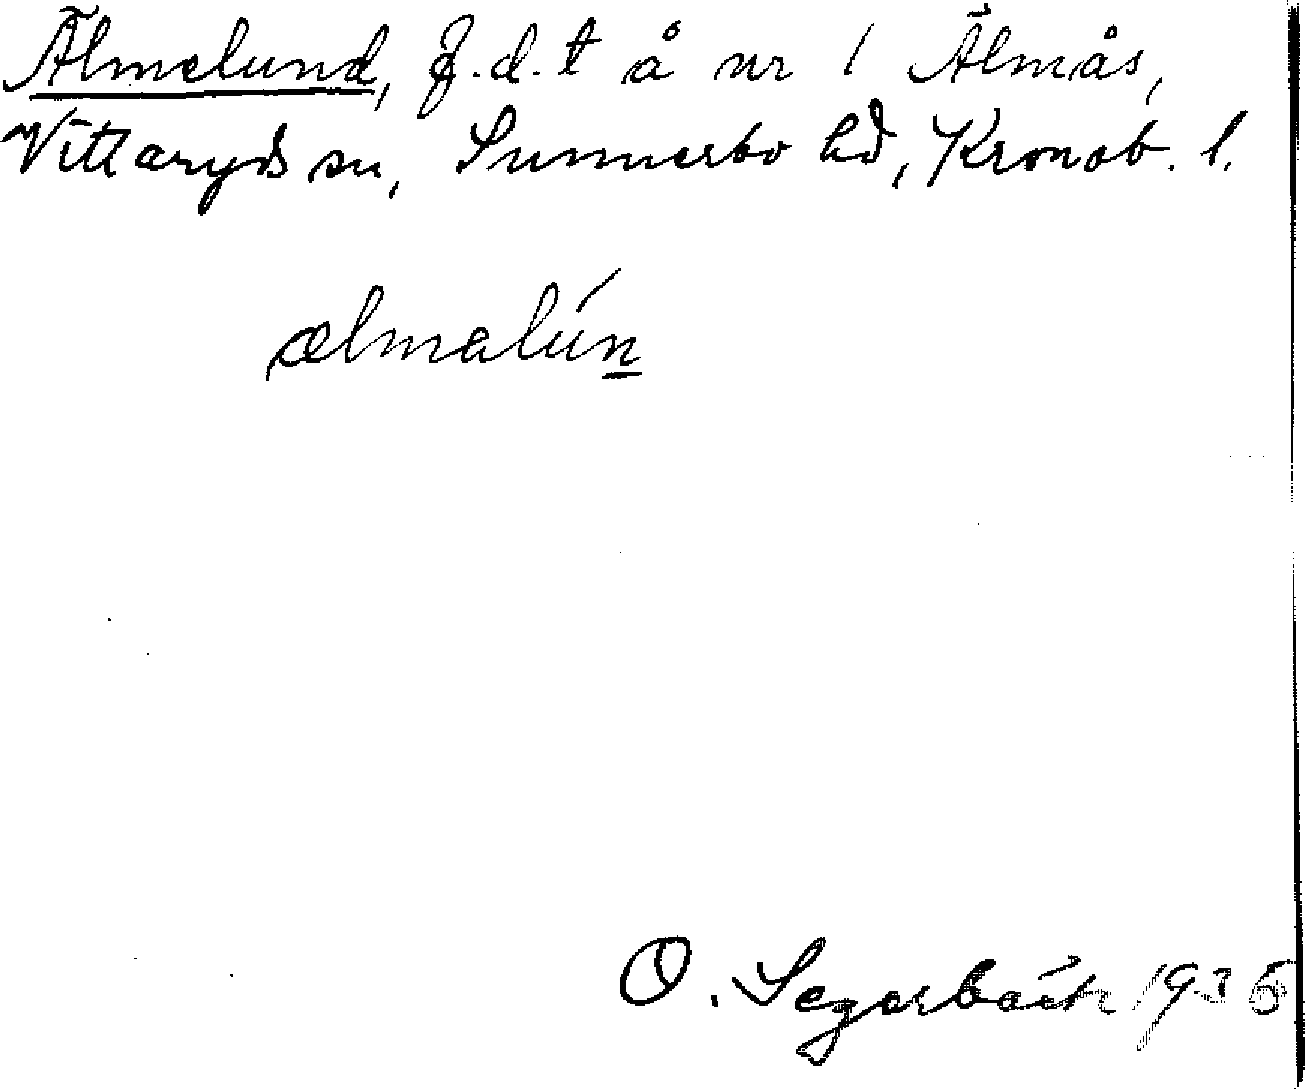 Älmelund, f.d.t å nr 1 Älmås,
Vittaryds sn, Sunnerbo hd, Kronob. l.
ælmalún
O. Segerbäck 1935